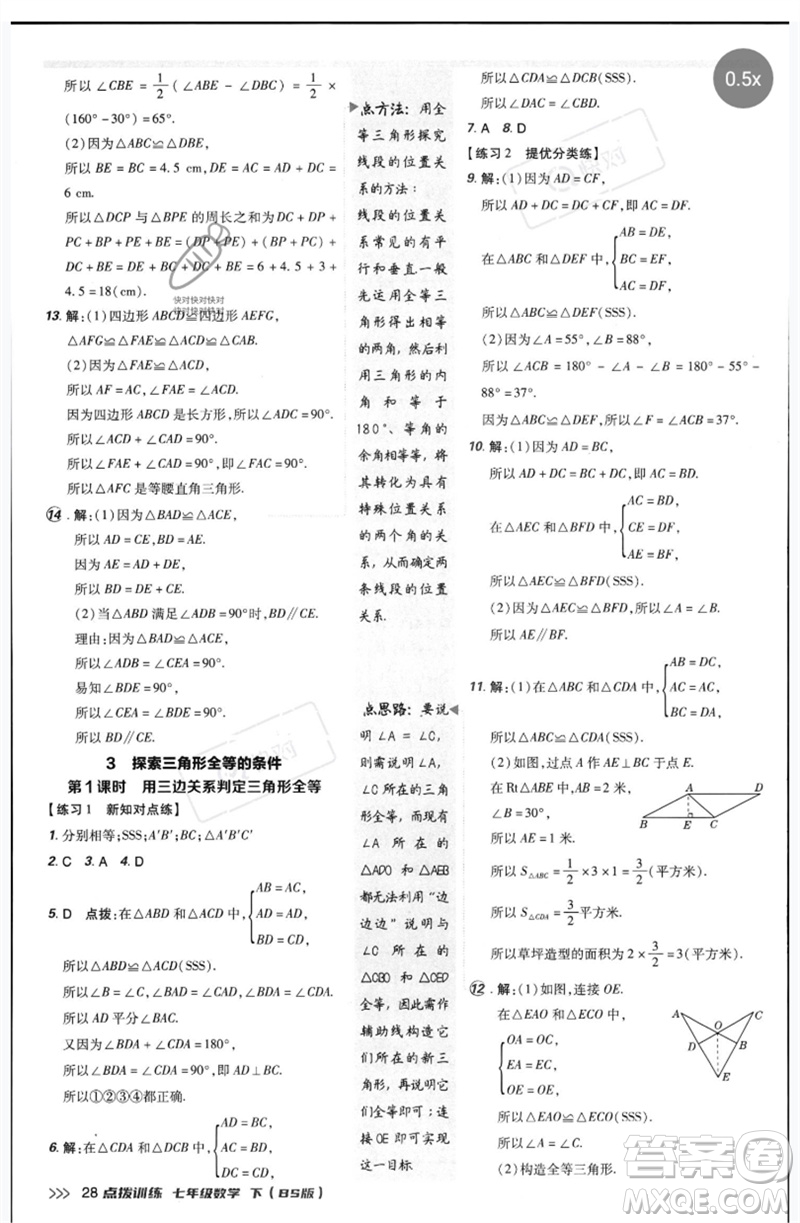 所以∠CBE=1/2(∠ABE-∠DBC)=1/2×
(160°-30°)=65°.
(2)因为△ABC≌△DBE,
所以 BE=BC=4.5 cm,DE=AC=AD+DC=
6 cm.
所以△DCP 与△BPE 的周长之和为 DC+DP+
PC+BP+PE+BE=DC+(DP+PE)+
(BP+PC)+BE=DC+DE+BC+BE=3+6+4.5+
4.5=18(cm).
13.解:(1)四边形 ABCD≌四边形 AEFG,
△AFG≌△FAE≌△CAD≌△ACB.
(2)因为△FAE≌△CAD,
所以 AF=AC,∠FAE=∠ACD.
因为四边形 ABCD 是长方形,所以∠ADC=90°.
所以∠ACD+∠CAD=90°.
所以∠FAE+∠CAD=90°,即∠FAC=90°.
所以△AFC 是等腰直角三角形.
14.解:(1)因为△BAD≌△ACE,
所以 AD=CE,BD=AE.
因为 AE=AD+DE,
所以 BD=DE+CE.
(2)当△ABD 满足∠ADB=90°时,BD∥CE.
理由:因为△BAD≌△ACE,
所以∠ADB=∠CEA=90°.
易知∠BDE=90°,
所以∠BDE=∠CEA.
所以 BD∥CE.
3 探索三角形全等的条件
第1课时 用三边关系判定三角形全等
【练习1 新知对点练】
1.分别相等;SSS;A′B′;BC;△A′B′C′
2.C 3.A 4.D
5.D 点拨:在△ABD 和△ACD 中,
AB=AC,
AD=AD,
BD=CD,
所以△ABD≌△ACD(SSS).
所以∠B=∠C,∠BAD=∠CAD,∠BDA=∠CDA.
所以 AD 平分∠BAC.
又因为∠BDA+∠CDA=180°,
所以∠BDA=∠CDA=90°,即 AD⊥BC.
所以①②③④都正确.
6.解:在△CDA 和△DCB 中,
AD=BC,
CD=DC,
AC=BD,
点方法:用全
等三角形探究
线段的位置关
系的方法:
线段的位置关
系常见的有平
行和垂直,一般
先运用全等三
角形得出相等
的两角,然后利
用三角形的内
角和等于
180°、等角的
余角相等等,将
其转化为具有
特殊位置关系
的两个角的关
系,从而确定两
条线段的位置
关系.
点思路:要说
明∠A=∠C,
则需说明∠A,
∠C所在的三角
形全等,而现有
∠A所在的
△ADO和△AEB
都无法利用“边
边边”说明与
∠C所在的
△CBO和△CED
全等,因此需作
辅助线构造它
们所在的新三
角形,再说明三
角形全等即可;连
接OE即可实现
这一目标.
所以△CDA≌△DCB(SSS).
所以∠DAC=∠CBD.
7.A 8.D
【练习2 提优分类练】
9.解:(1)因为 AD=CF,
所以 AD+DC=DC+CF,即 AC=DF.
在△ABC 和△DEF 中,
AB=DE,
BC=EF,
AC=DF,
所以△ABC≌△DEF(SSS).
(2)因为∠A=55°,∠B=88°,
所以∠ACB=180°-∠A-∠B=180°-55°-
88°=37°.
因为△ABC≌△DEF,所以∠F=∠ACB=37°.
10.解:(1)因为 AD=BC,
所以 AD+DC=BC+DC,即 AC=BD.
在△AEC 和△BFD 中,
AC=BD,
CE=DF,
AE=BF,
所以△AEC≌△BFD(SSS).
(2)因为△AEC≌△BFD,所以∠A=∠B.
所以 AE∥BF.
11.解:(1)在△ABC 和△CDA 中,
AB=DC,
AC=CA,
BC=DA,
所以△ABC≌△CDA(SSS).
(2)如图,过点 A 作 AE⊥BC 于点 E.
在 Rt△ABE 中,AB=2 米,
∠B=30°,
所以 AE=1 米.
所以 S△ABC=1/2×3×1=3/2(平方米).
所以 S△CDA=3/2平方米.
所以草坪造型的面积为 2×3/2=3(平方米).
A
D
B
E
C
12.解:(1)如图,连接 OE.
在△EAO 和△ECO 中,
OA=OC,
EA=EC,
OE=OE,
所以△EAO≌△ECO(SSS).
所以∠A=∠C.
(2)构造全等三角形.
A
C
O
D
B
E
28 点拨训练 七年级数学 下(BS版)
0.5x
快对快对快对
快对快对快对
答案圈
MXQE.COM